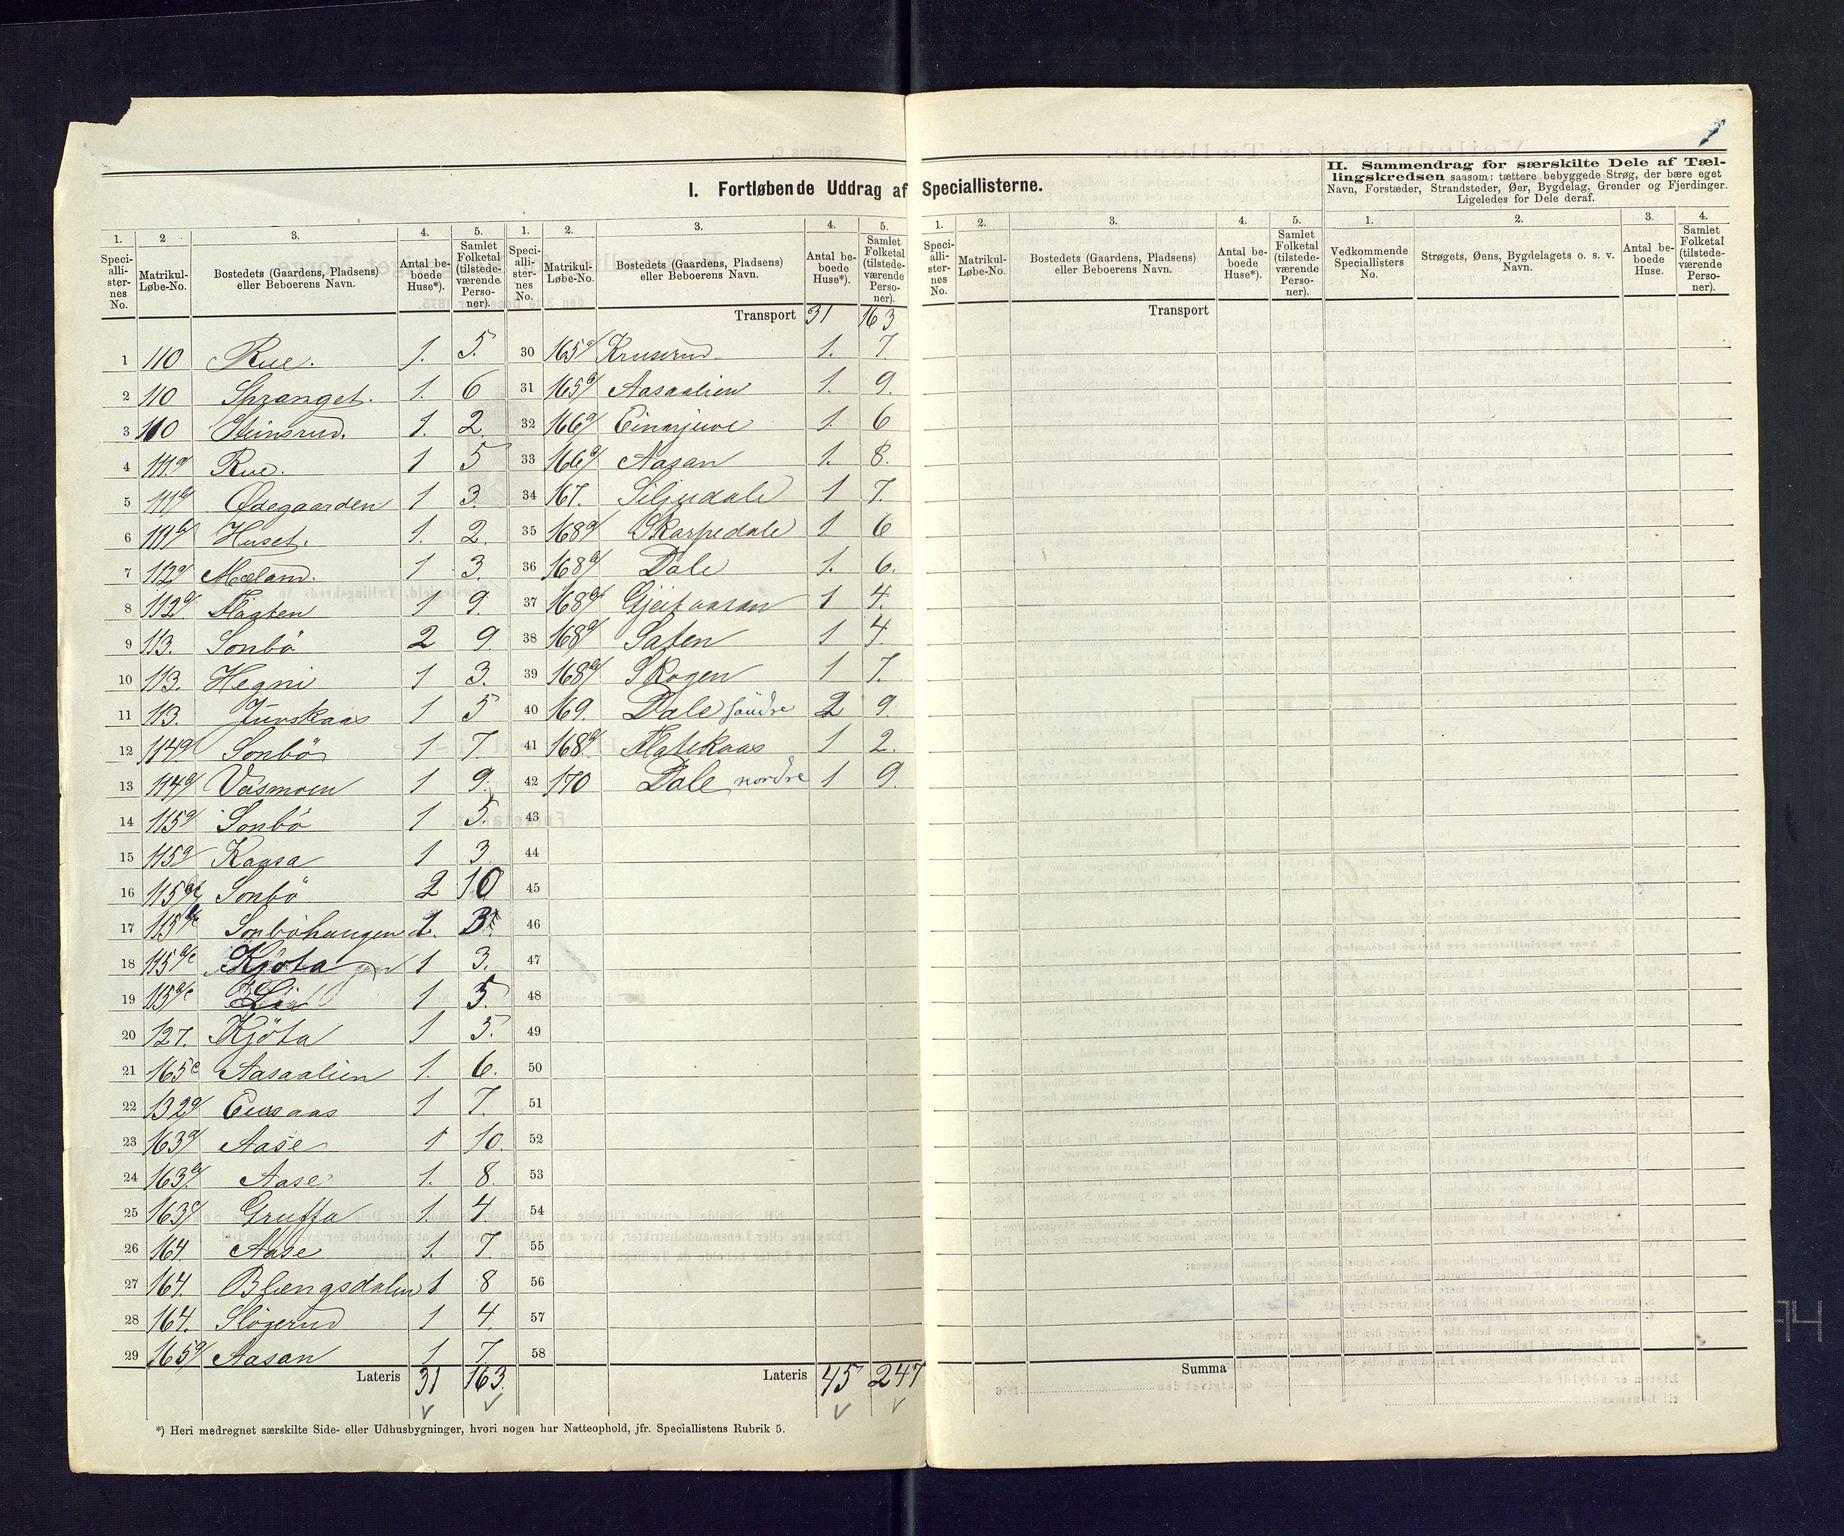 I. Fortløbende Uddrag af Speciallisterne.
II. Sammendrag for særskilte Dele af Tællingskredsen saasom: tættere bebyggede Strøg, der bære eget
Navn, Forstæder, Strandsteder, Øer, Bygdelag, Grender og Fjerdinger.
Ligeledes for Dele deraf.
1. 2 3. 4. 5. 1. 2. 3. 4. 5. 1. 2. 3. 4. 5. 1. 2. 3. 4.
Speciallisternes No. Matrikul-Løbe-No. Bostedets (Gaardens, Pladsens) eller Beboerens Navn. Antal beboede Huse*). Samlet Folketal (tilstedeværende Personer).
Speciallisternes No. Matrikul-Løbe-No. Bostedets (Gaardens, Pladsens) eller Beboerens Navn. Antal beboede Huse*). Samlet Folketal (tilstedeværende Personer).
Speciallisternes No. Matrikul-Løbe-No. Bostedets (Gaardens, Pladsens) eller Beboerens Navn. Antal beboede Huse*). Samlet Folketal (tilstedeværende Personer).
Vedkommende Speciallisters No. Strøgets, Øens, Bygdelagets o. s. v. Navn. Antal beboede Huse. Samlet Folketal (tilstedeværende Personer).
1 110 Rue. 1. 5.
2 110 Spranget. 1. 6
3 110 Steinsrud. 1. 2.
4 111a/ Rue. 1 5
5 111a/ Ødegaarden 1 3.
6 111b/ Huset. 1. 2.
7 112a/ Mæland. 1 3.
8 112a/ Flaaten 1 9.
9 113. Sonbö 2 9.
10 113. Hegni 1 3.
11 113. Juvskaas 1 5
12 114a/ Sonbö 1 7.
13 114a/ Vasmoen 1 9.
14 115a/ Sonbö 1 5.
15 115a/ Kaasa 1 3.
16 115 Sonbö 2 10
17 115 Sonböhaugen 1. 3.
18 115a/c Kjöta 1 3.
19 115a/c Lio 1 5.
20 127. Kjöta 1 5.
21 165c Aasaalien 1. 6.
22 132a/ Eersaas 1 7.
23 163a/ Aase 1 10.
24 163a/. Aase 1. 8.
25 163c/ Gruffa 1. 4.
26 164 Aase 1. 7.
27 164. Blængsdalen 1 8
28 164. Slögerud 1 4.
29 165a/ Aasan 1 7.
Lateris 31 163.
Transport 31 163
30 165a/ Kruserud 1. 7.
31 165a/ Aasaalien 1. 9.
32 166a/ Einarjuve 1. 6
33 166a/ Aasan 1. 8.
34 167. Siljudale 1 7.
35 168a/ Skarpedale 1 6
36 168a/ Dale 1. 6.
37 168a/ Gjeitaasan 1 4.
38 168a/ Saten 1 4
39 168a/ Skogen 1 7.
40 169. Dale söndre 2 9.
41 168a/. Flatekaas 1 2.
42 170 Dale nordre 1 9.
43
44
45
46
47
48
49
50
51
52
53
54
55
56
57
58
Lateris 45 247
Transport
Summa
*) Heri medregnet særskilte Side- eller Udhusbygninger, hvori nogen har Natteophold, jfr. Speciallistens Rubrik 5.